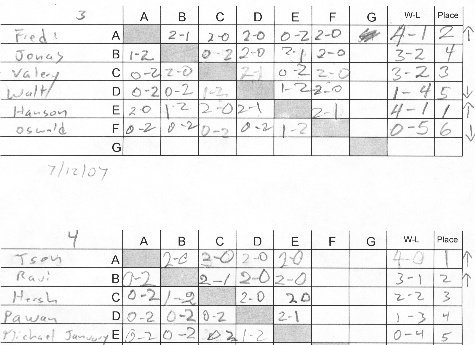 3 A B C D E F G W-L Place
Fredi A 2-1 2-0 2-0 0-2 2-0 4-1 2 ↑
Jonas B 1-2 0-2 2-0 2-1 2-0 3-2 4
Valery C 0-2 2-0 2-1 0-2 2-0 3-2 3
Walt D 0-2 0-2 1-2 1-2 2-0 1-4 5 ↓
Hanson E 2-0 1-2 2-0 2-1 2-1 4-1 1 ↑
Oswald F 0-2 0-2 0-2 0-2 1-2 0-5 6 ↓
G
7/12/07
4 A B C D E F G W-L Place
A 2-0 2-0 2-0 2-0 4-0 1 ↑
Ravi B 0-2 2-1 2-0 2-0 3-1 2 ↑
Hersh C 0-2 1-2 2-0 20 2-2 3
Pawan D 0-2 0-2 0-2 2-1 1-3 4
Michael January E 0-2 0-2 02 1-2 0-4 5